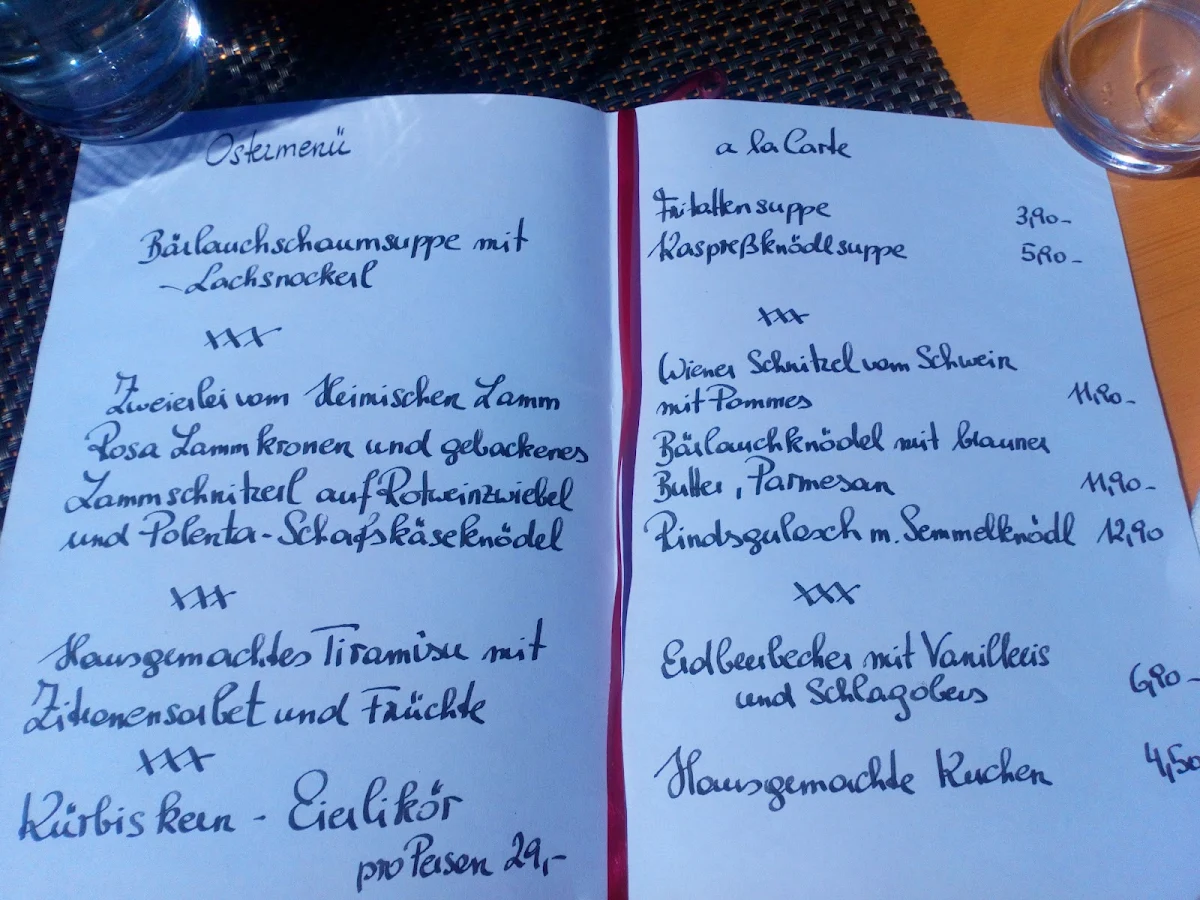 Ostermenü
Bärlauchschaumsuppe mit
Lachsnockerl
xxx
Zweierlei vom Heimischen Lamm
Rosa Lammkronen und gebackenes
Lammschnitzerl auf Rotweinzwiebel
und Polenta-Schafskäseknödel
xxx
Hausgemachtes Tiramisu mit
Zitronensorbet und Früchte
xxx
Kürbiskern - Eierlikör
pro Person 29,-
a la Carte
Fritattensuppe 3,90-
Kaspreßknödlsuppe 5,90-
xxx
Wiener Schnitzel vom Schwein
mit Pommes 11,90-
Bärlauchknödel mit brauner
Butter, Parmesan 11,90-
Rindsgulasch m. Semmelknödl 12,90
xxx
Erdbeerbecher mit Vanilleeis
und Schlagobers 6,90-
Hausgemachte Kuchen 4,50